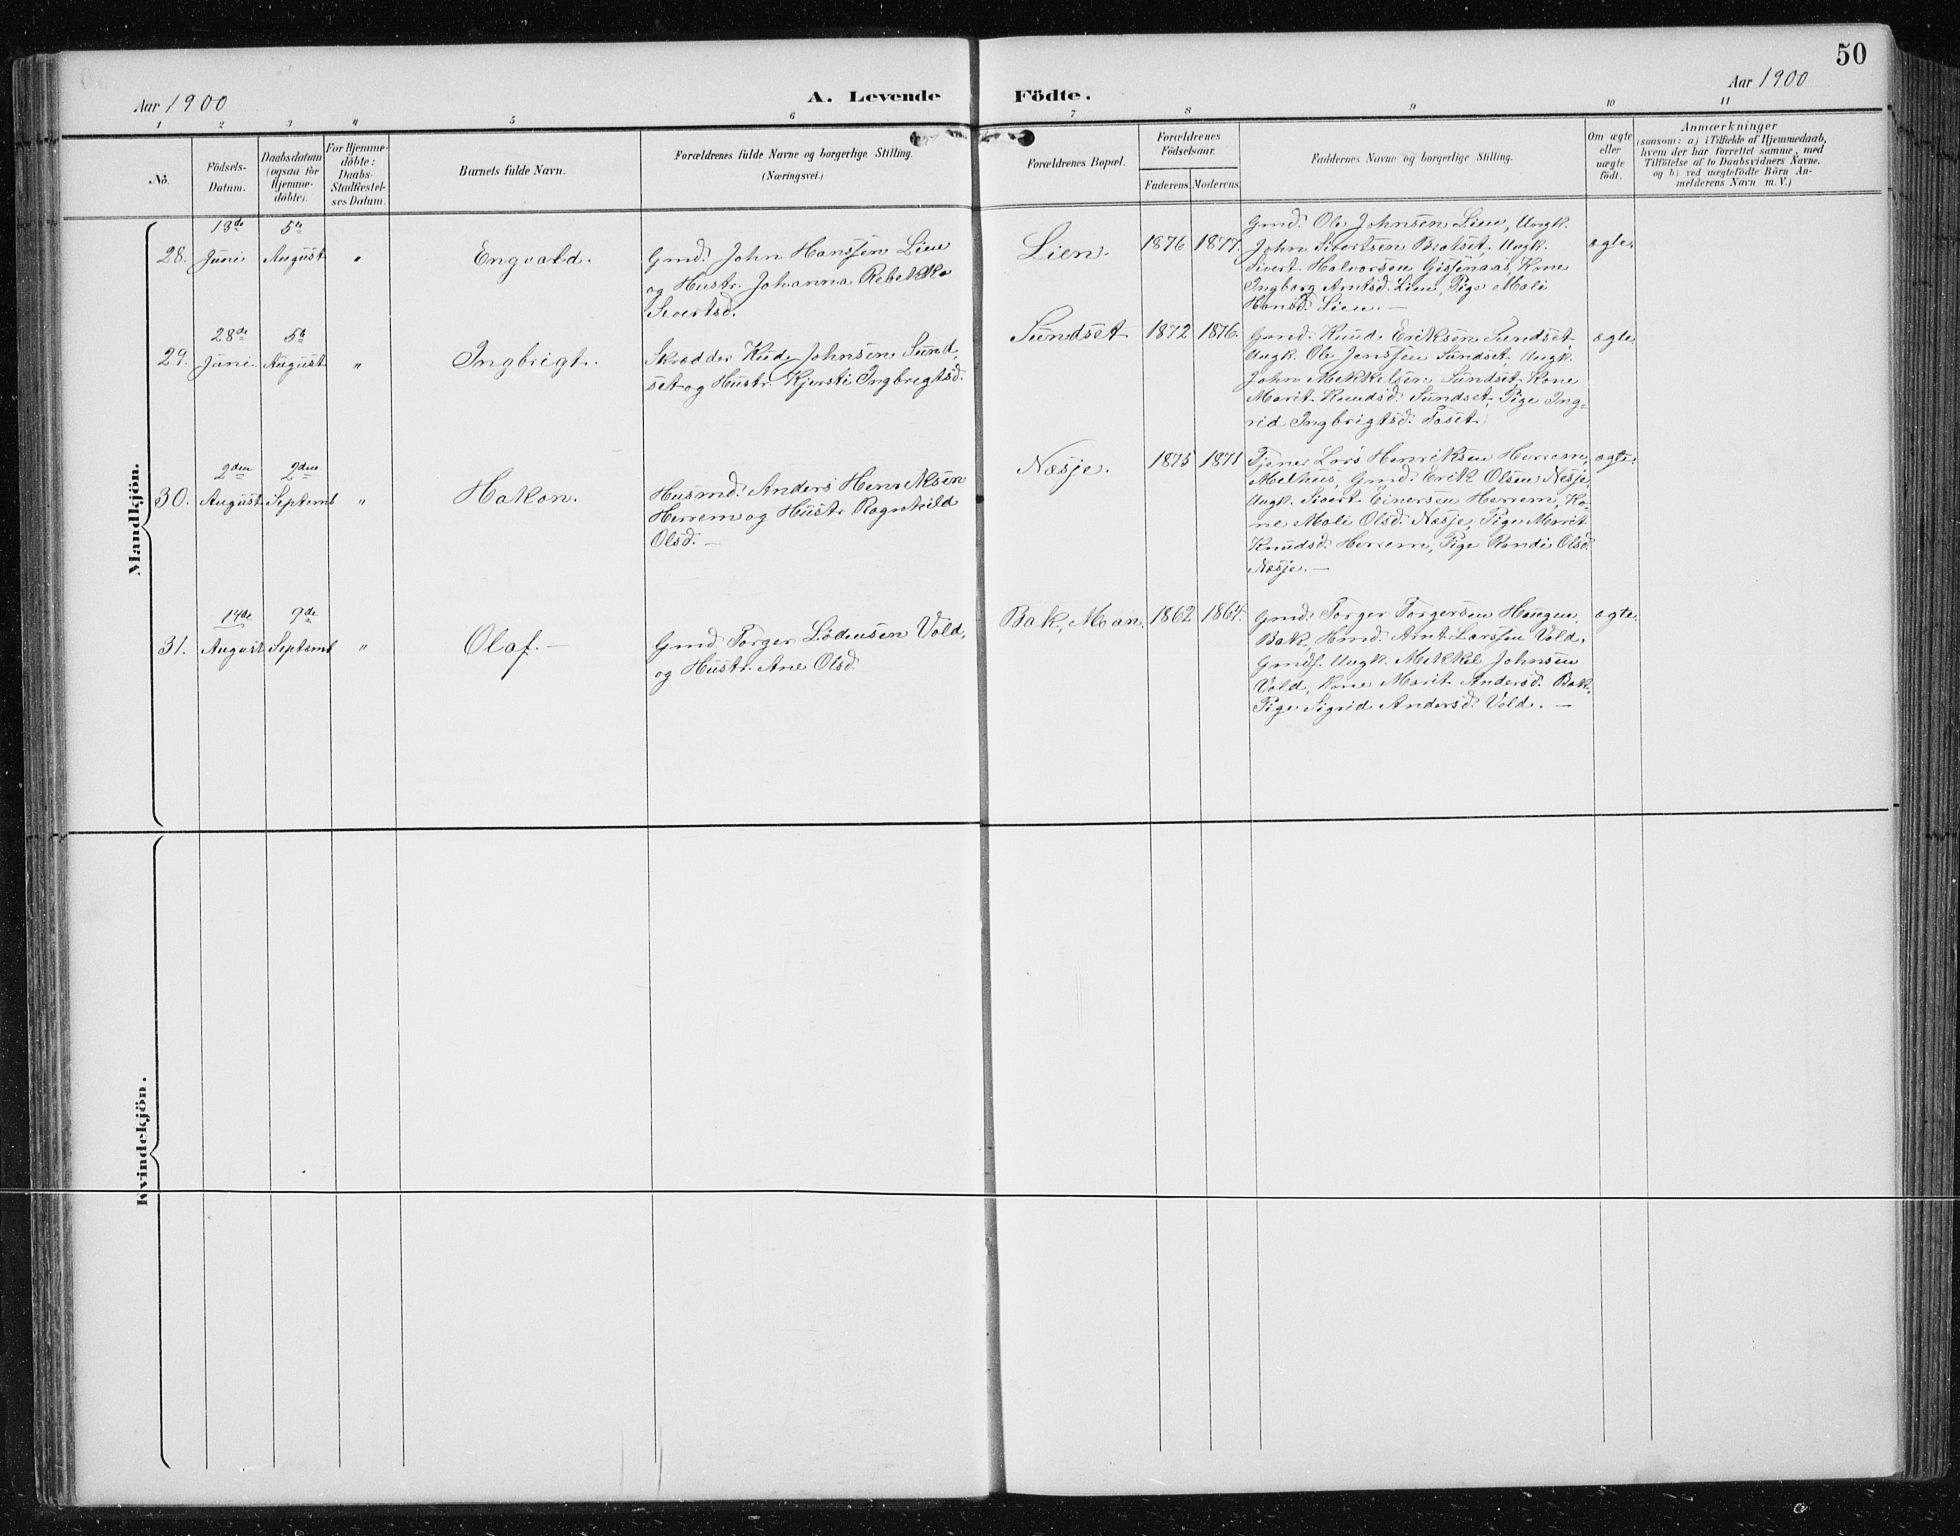 50
Aar 1900
A. Levende Födte.
Aar 1900
1 2 3 4 5 6 7 8 9 10 11
No.
Födsels-
Datum.
Daabsdatum
(ogsaa for
Hjemme-
döbte).
For Hjemme-
döbte:
Daabs-
Stadfæstel-
ses Datum.
Barnets fulde Navn.
Forældrenes fulde Navne og borgerlige Stilling.
(Næringsvei.)
Forældrenes Bopæl.
Forældrenes
Födselsaar.
Faderens. Moderens.
Faddernes Navne og borgerlige Stilling.
Om ægte
eller
uægte
födt.
Anmærkninger
(saasom: a) i Tilfælde af Hjemmedaab,
hvem der har forrettet samme, med
Tilföielse af to Daabsvidners Navne.
og b) ved uægtefödte Börn An-
melderens Navn m. V.)
Mandkjön.
28.
18de
Juni
5te
August
"
Engvald.
Gmd. John Hanssen Lien
og Hustr. Johanna Rebekka
Sivertsd.
Lien.
1876
1877.
Gmd. Ole Johnsen Lien, Ungk.
John Sivertsen Bratset, Ungk.
Sivert Halvorsen Gissinaas, Kone
Ingborg Arntsd. Lien, Pige Mali
Hansd. Lien. —
ægte.
29.
28de
Juni.
5te
August
"
Ingbrigt.
Skrædder Knud Johnsen Sund-
set og Hustr. Kjersti Ingbrigtsd.
Sundset
1872
1876.
Gmd. Knud Eriksen Sundset,
Ungk. Ole Jenssen Sundset, Ungk.
John Mekkelsen Sundset, Kone
Marit Knudsd. Sundset, Pige Ing-
rid Ingbrigtsd. Foset.
ægte
30.
2den
August
2den
Septemb
"
Hakon.
Husmd. Anders Henriksen
Herrem og Hustr. Ragnhild
Olsd. —
Næsje.
1875
1871
Tjener Lars Henriksen Herrem,
Melhus, Gmd. Erik Olsen Næsje,
Ungk. Sivert Einersen Herrem, Ko-
ne Mali Olsd. Næsje, Pige Marit
Knudsd. Herrem, Pige Randi Olsd.
Næsje. —
ægte.
31.
14de
August
9de
Septemb
"
Olaf. —
Gmd. Torger Lødensen Vold,
og Hustr. Ane Olsd.
Bak, Moan.
1862
1864.
Gmd. Torger Torgersen Haugen,
Bak, Hmd. Arnt Larssen Vold,
Gmdf. Ungk. Mekkel Johnsen
Vold, Kone Marit Andersd. Bak,
Pige Sigrid Andersd. Vold. —
ægte.
Kvindekjön.